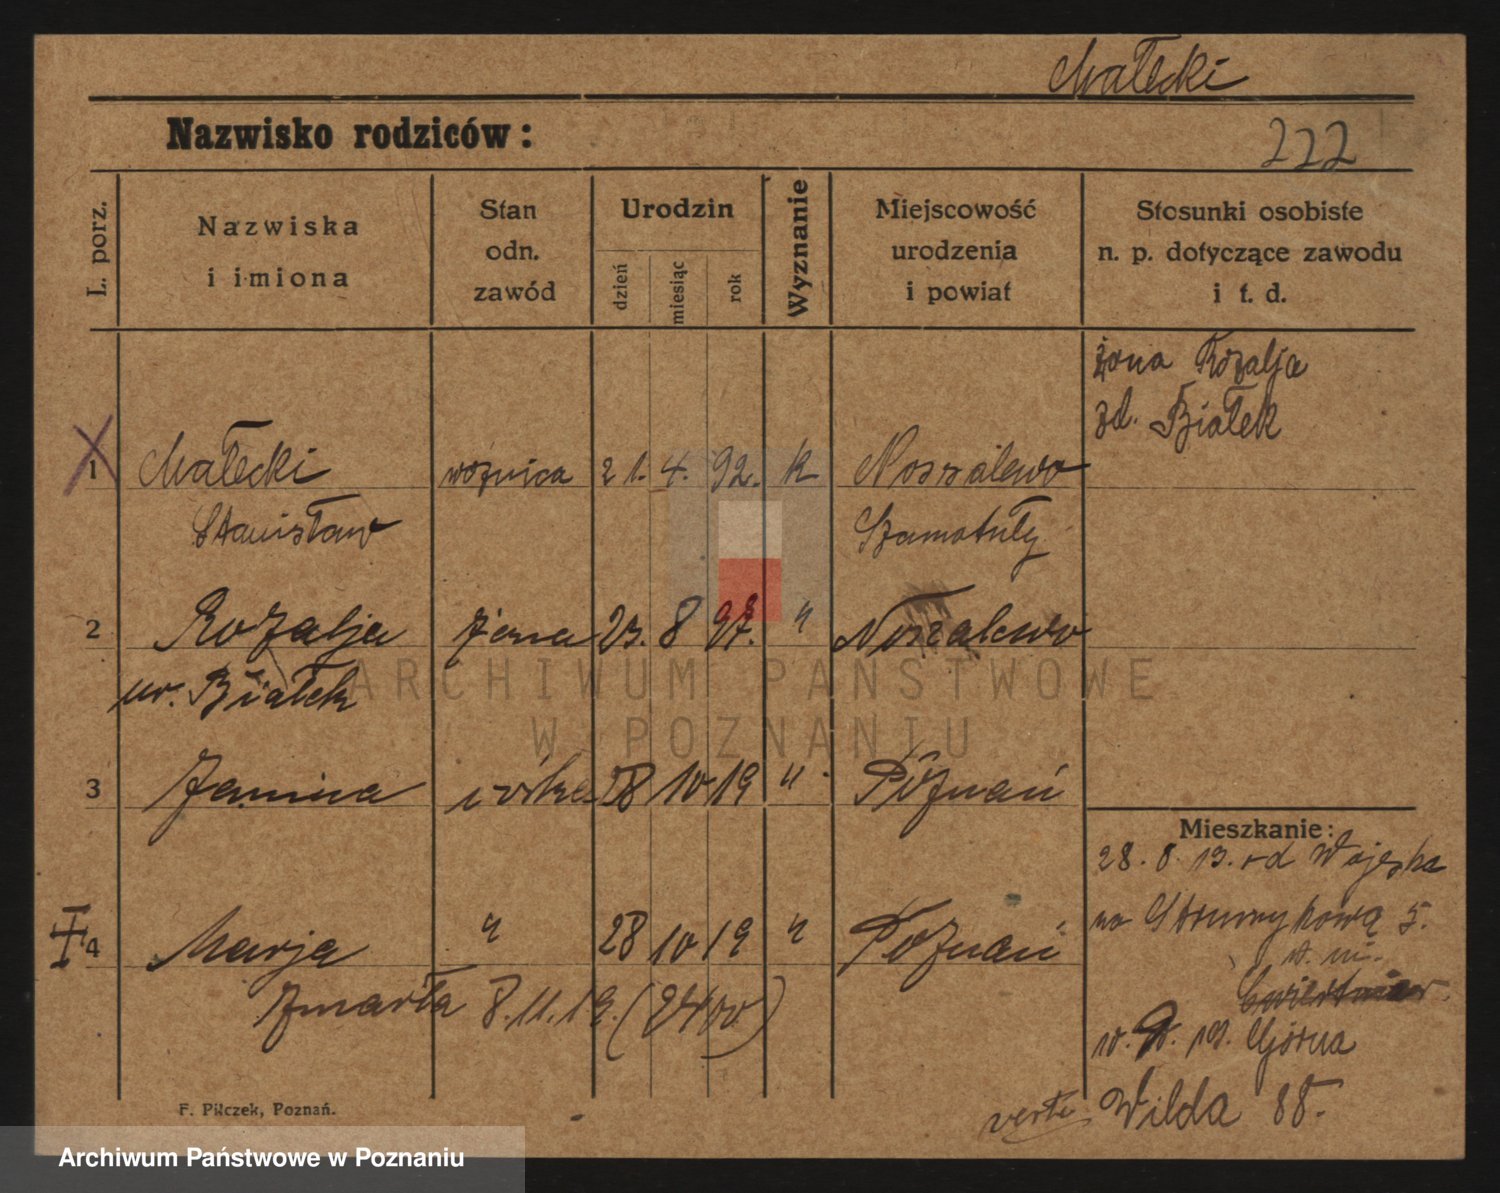 Małecki
Nazwisko rodziców:
222
L. porz.
Nazwiska
i imiona
Stan
odn.
zawód
Urodzin
dzień
miesiąc
rok
Wyznanie
Miejscowość
urodzenia
i powiat
Stosunki osobiste
n. p. dotyczące zawodu
i t. d.
żona Rozalja
zd. Białek
1 Małecki woźnica 21. 4. 92. k
Stanisław Szamotuły
2 Rozalja żona 23. 8 97. "
ur. Białek
3 Janina córka 28 10 19 " Poznań
Mieszkanie:
28. 8. 19. od Wojska
na Strumykową 5.
4 Marja " 28 10 19 " Poznań
Zmarła 8.11.19. (2400)
10. 19. Górna
Wilda 88.
verte
F. Pilczek, Poznań.
ARCHIWUM PAŃSTWOWE
W POZNANIU
Archiwum Państwowe w Poznaniu